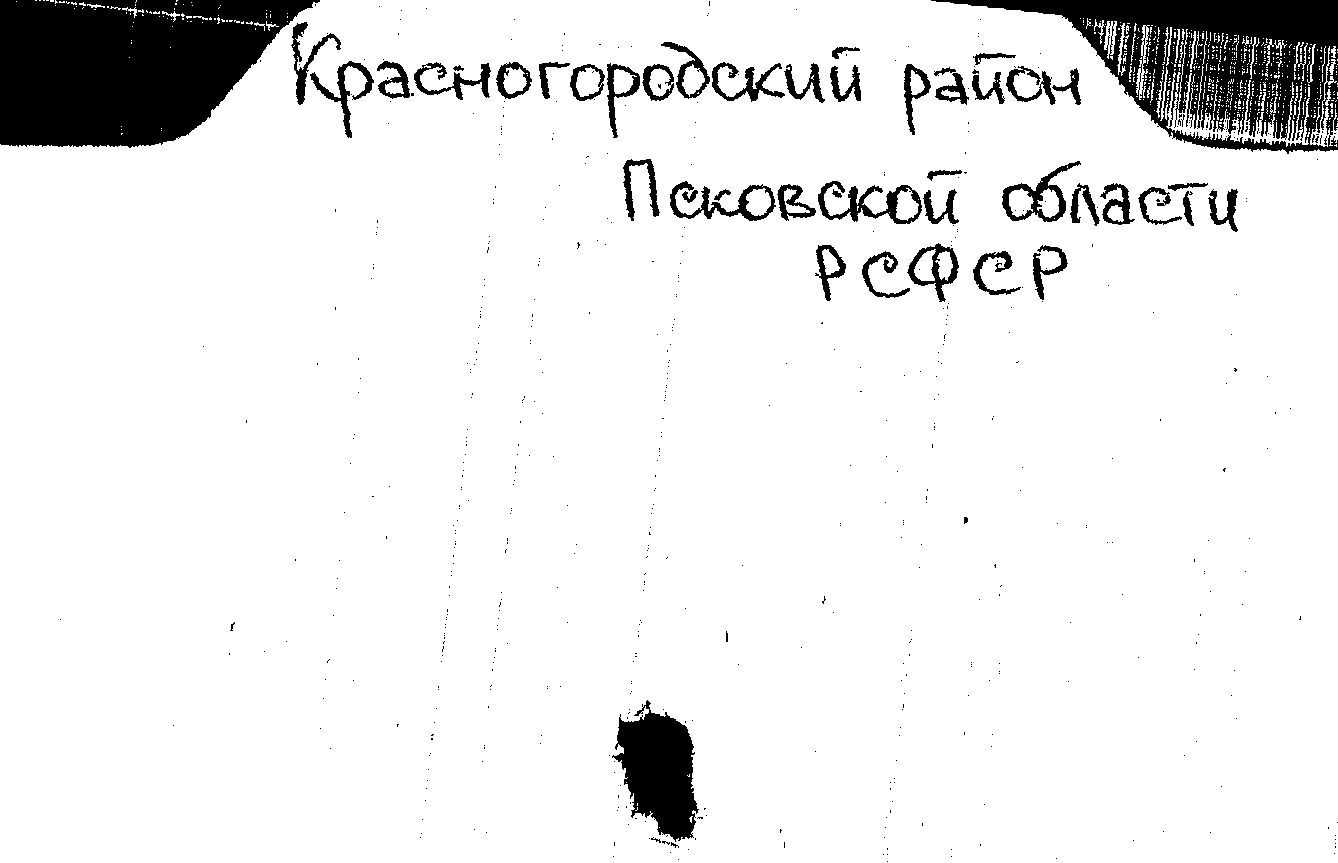 Красногородский район
Псковской области
РСФСР